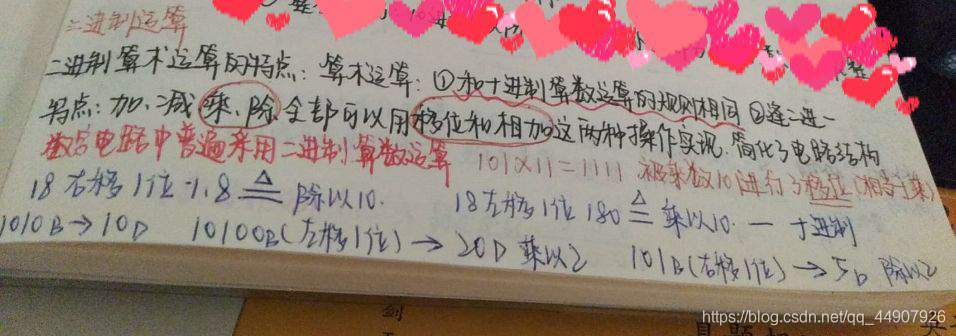 二进制运算
二进制算术运算的特点：算术运算：①和十进制算数运算的规则相同 ②逢二进一
特点：加、减 乘、除 全部可以用移位和相加这两种操作实现. 简化了电路结构
数字电路中普遍采用二进制算数运算 101×11=1111 被乘数10进行了移位(相当于乘)
18右移1位 1.8 ≜ 除以10. 18左移1位 180 ≜ 乘以10. — 十进制
1010B→10D 10100B(左移1位)→20D 乘以2 101B(右移1位)→5D 除以2
https://blog.csdn.net/qq_44907926